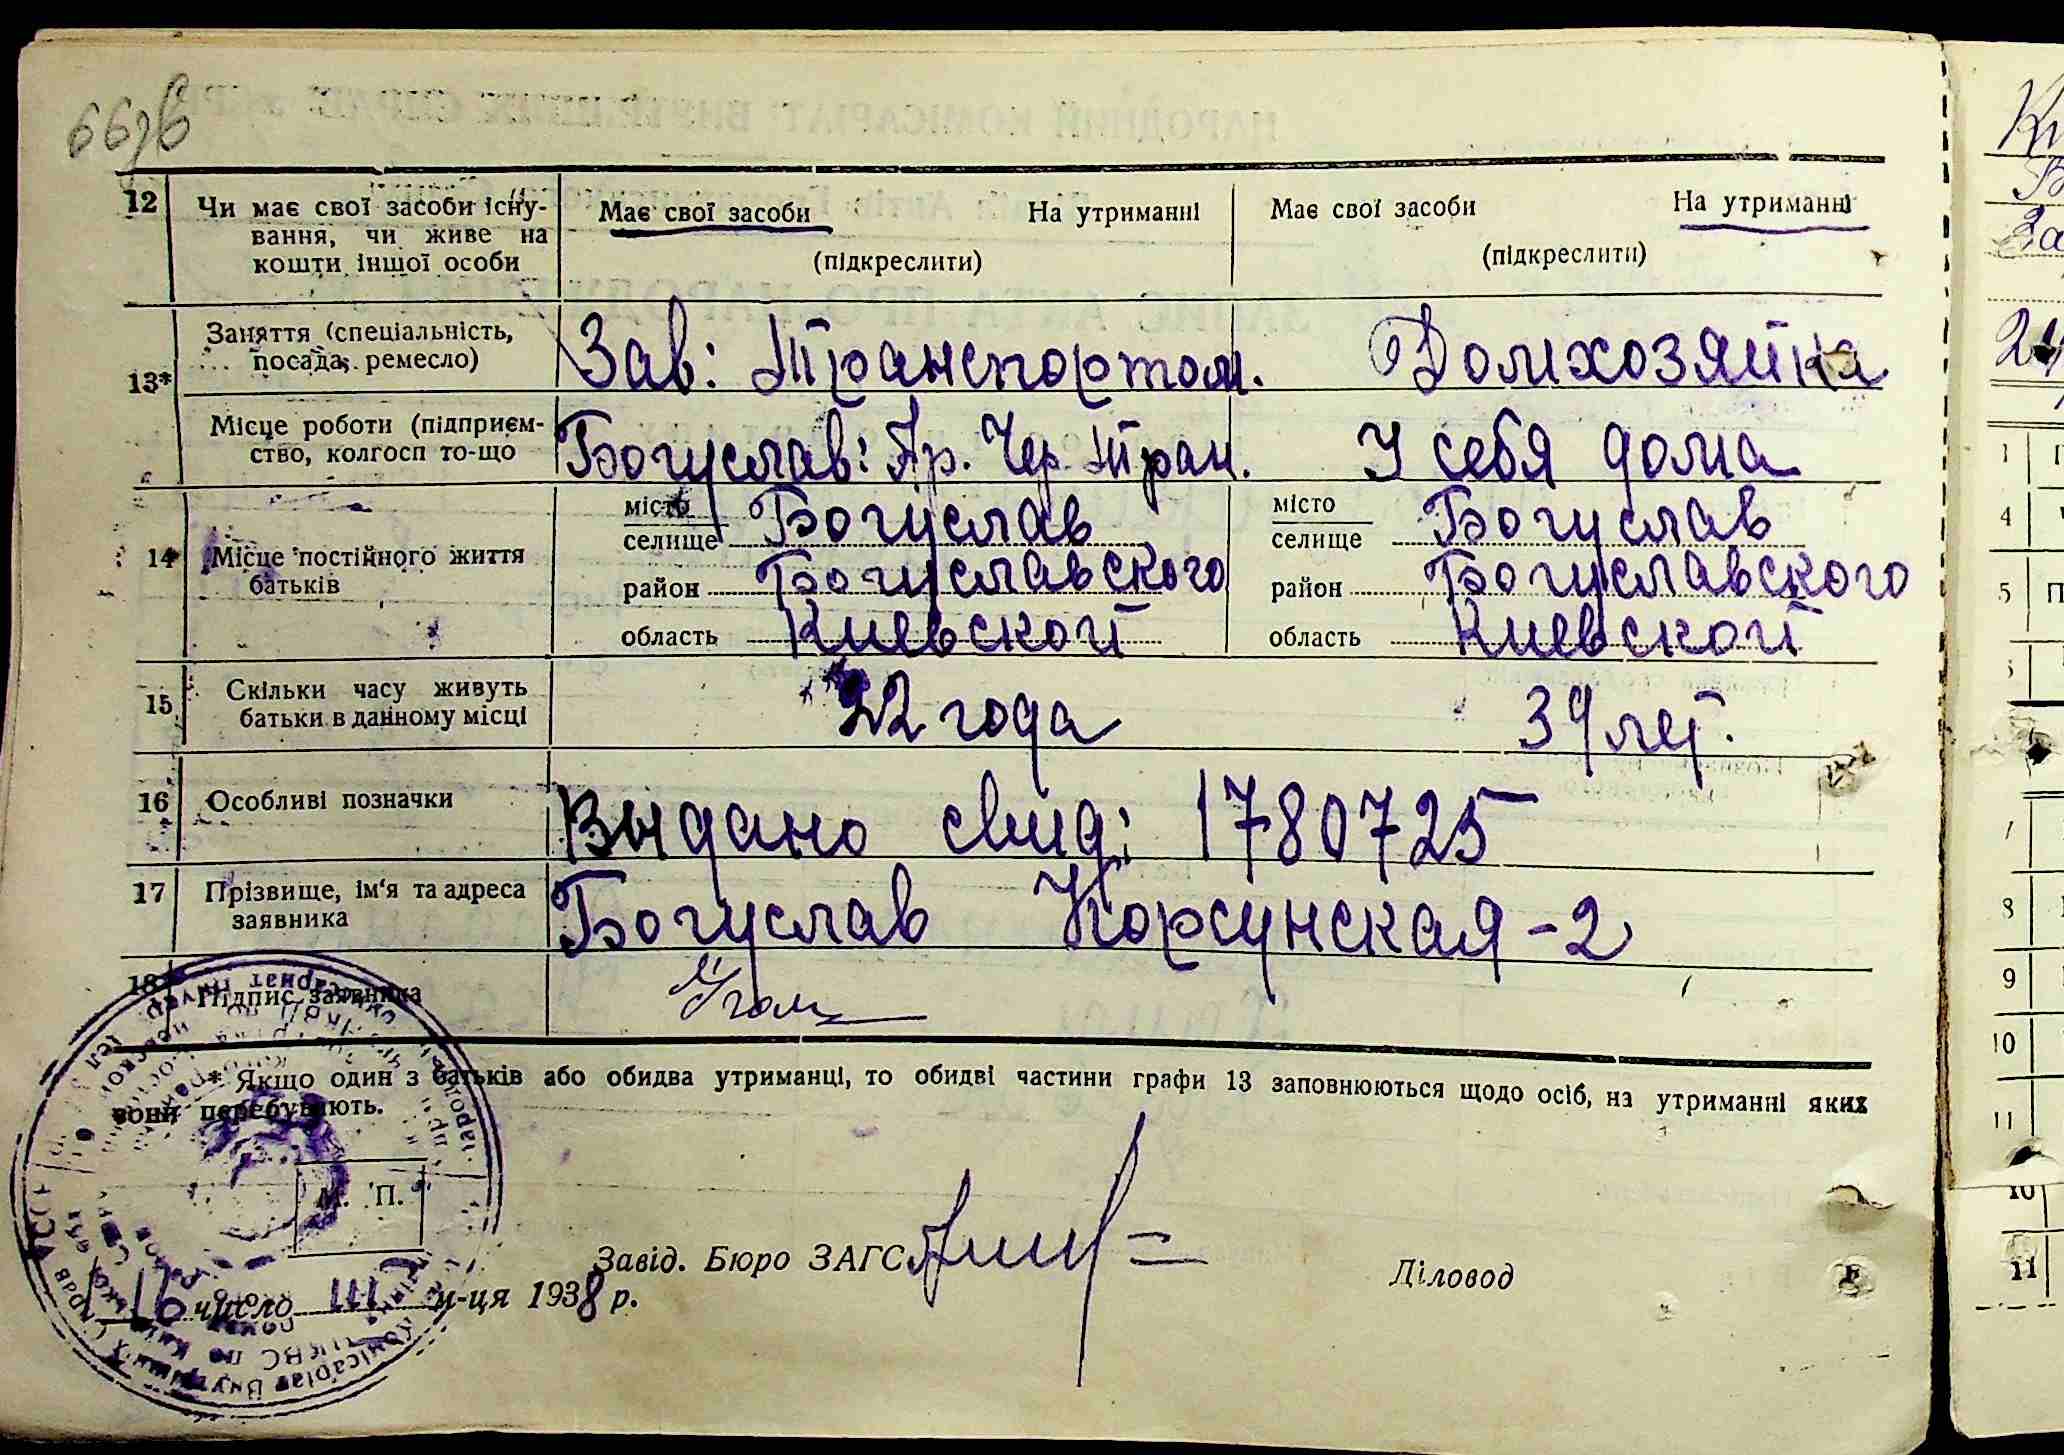 66зв
12 Чи має свої засоби існу- Має свої засоби На утриманні Має свої засоби На утриманні
вання, чи живе на
кошти іншої особи (підкреслити) (підкреслити)
13* Заняття (спеціальність,
посада, ремесло) Зав: Транспортом. Домхозяйка
Місце роботи (підприєм-
ство, колгосп то-що Богуслав: Пр. Чер. Тран. У себя дома
14* Місце постійного життя
батьків
місто
селище Богуслав місто
селище Богуслав
район Богуславского район Богуславского
область Киевской область Киевской
15 Скільки часу живуть
батьки в данному місці 22 года 39 лет.
16 Особливі позначки Выдано свид: 1780725
17 Прізвище, ім'я та адреса
заявника Богуслав Корсунская-2
18* Підпис заявника
* Якщо один з батьків або обидва утриманці, то обидві частини графи 13 заповнюються щодо осіб, на утриманні яких
вони перебувають.
М. П.
Завід. Бюро ЗАГС Діловод
16 число III м-ця 1938 р.